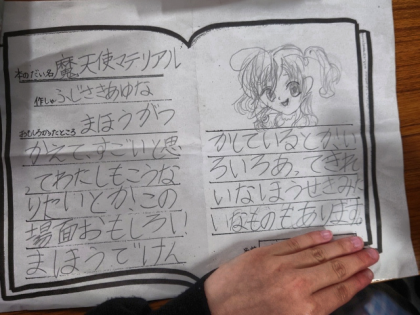 本のだい名 魔天使マテリアル
作しゃ ふじさきあゆな
おもしろかったところ まほうがつ
かえて、すごいと思
ってわたしもこうな
りたいとかこの
場面おもしろい
まほうでけん
かしているとか、い
ろいろあってきれ
いなほうせきみた
いなものもあります